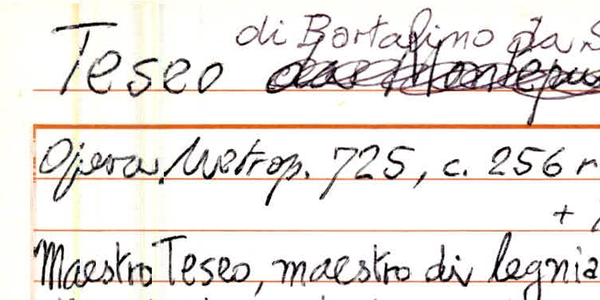 di Bartalino da S
Teseo
Opera Metrop. 725, c. 256 r
+
Maestro Teseo, maestro di legnia